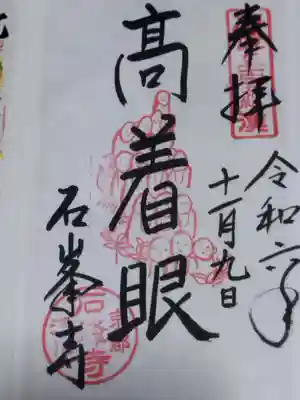 奉拝
令和六年
十一月九日
高着眼
石峯寺